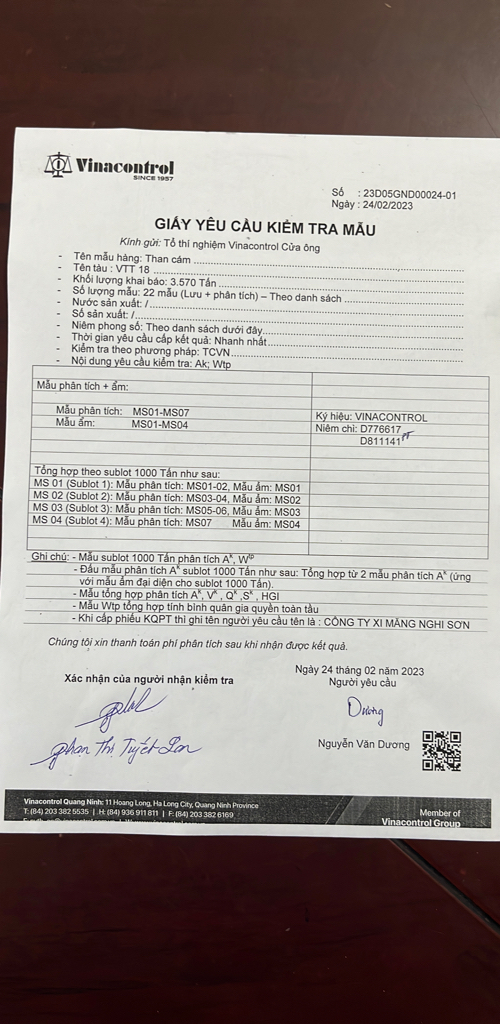 Vinacontrol
SINCE 1957
Số : 23D05GND00024-01
Ngày : 24/02/2023
GIẤY YÊU CẦU KIỂM TRA MẪU
Kính gửi: Tổ thí nghiệm Vinacontrol Cửa ông
- Tên mẫu hàng: Than cám
- Tên tàu : VTT 18
- Khối lượng khai báo: 3.570 Tấn
- Số lượng mẫu: 22 mẫu (Lưu + phân tích) – Theo danh sách
- Nước sản xuất: /
- Số sản xuất: /
- Niêm phong số: Theo danh sách dưới đây
- Thời gian yêu cầu cấp kết quả: Nhanh nhất
- Kiểm tra theo phương pháp: TCVN
- Nội dung yêu cầu kiểm tra: Ak; Wtp
Mẫu phân tích + ẩm:
Mẫu phân tích: MS01-MS07
Ký hiệu: VINACONTROL
Mẫu ẩm: MS01-MS04
Niêm chì: D776617
D811141
Tổng hợp theo sublot 1000 Tấn như sau:
MS 01 (Sublot 1): Mẫu phân tích: MS01-02, Mẫu ẩm: MS01
MS 02 (Sublot 2): Mẫu phân tích: MS03-04, Mẫu ẩm: MS02
MS 03 (Sublot 3): Mẫu phân tích: MS05-06, Mẫu ẩm: MS03
MS 04 (Sublot 4): Mẫu phân tích: MS07 Mẫu ẩm: MS04
Ghi chú: - Mẫu sublot 1000 Tấn phân tích Aᵏ, Wᵗᵖ
- Đầu mẫu phân tích Aᵏ sublot 1000 Tấn như sau: Tổng hợp từ 2 mẫu phân tích Aᵏ (ứng
với mẫu ẩm đại diện cho sublot 1000 Tấn).
- Mẫu tổng hợp phân tích Aᵏ, Vᵏ , Qᵏ ,Sᵏ , HGI
- Mẫu Wtp tổng hợp tính bình quân gia quyền toàn tàu
- Khi cấp phiếu KQPT thì ghi tên người yêu cầu tên là : CÔNG TY XI MĂNG NGHI SƠN
Chúng tôi xin thanh toán phí phân tích sau khi nhận được kết quả.
Ngày 24 tháng 02 năm 2023
Xác nhận của người nhận kiểm tra
Người yêu cầu
Dương
Phan Thị Tuyết Lan
Nguyễn Văn Dương
Vinacontrol Quang Ninh: 11 Hoang Long, Ha Long City, Quang Ninh Province
T: (84) 203 382 5535 | H: (84) 936 911 811 | F: (84) 203 382 6169
Member of
Vinacontrol Group